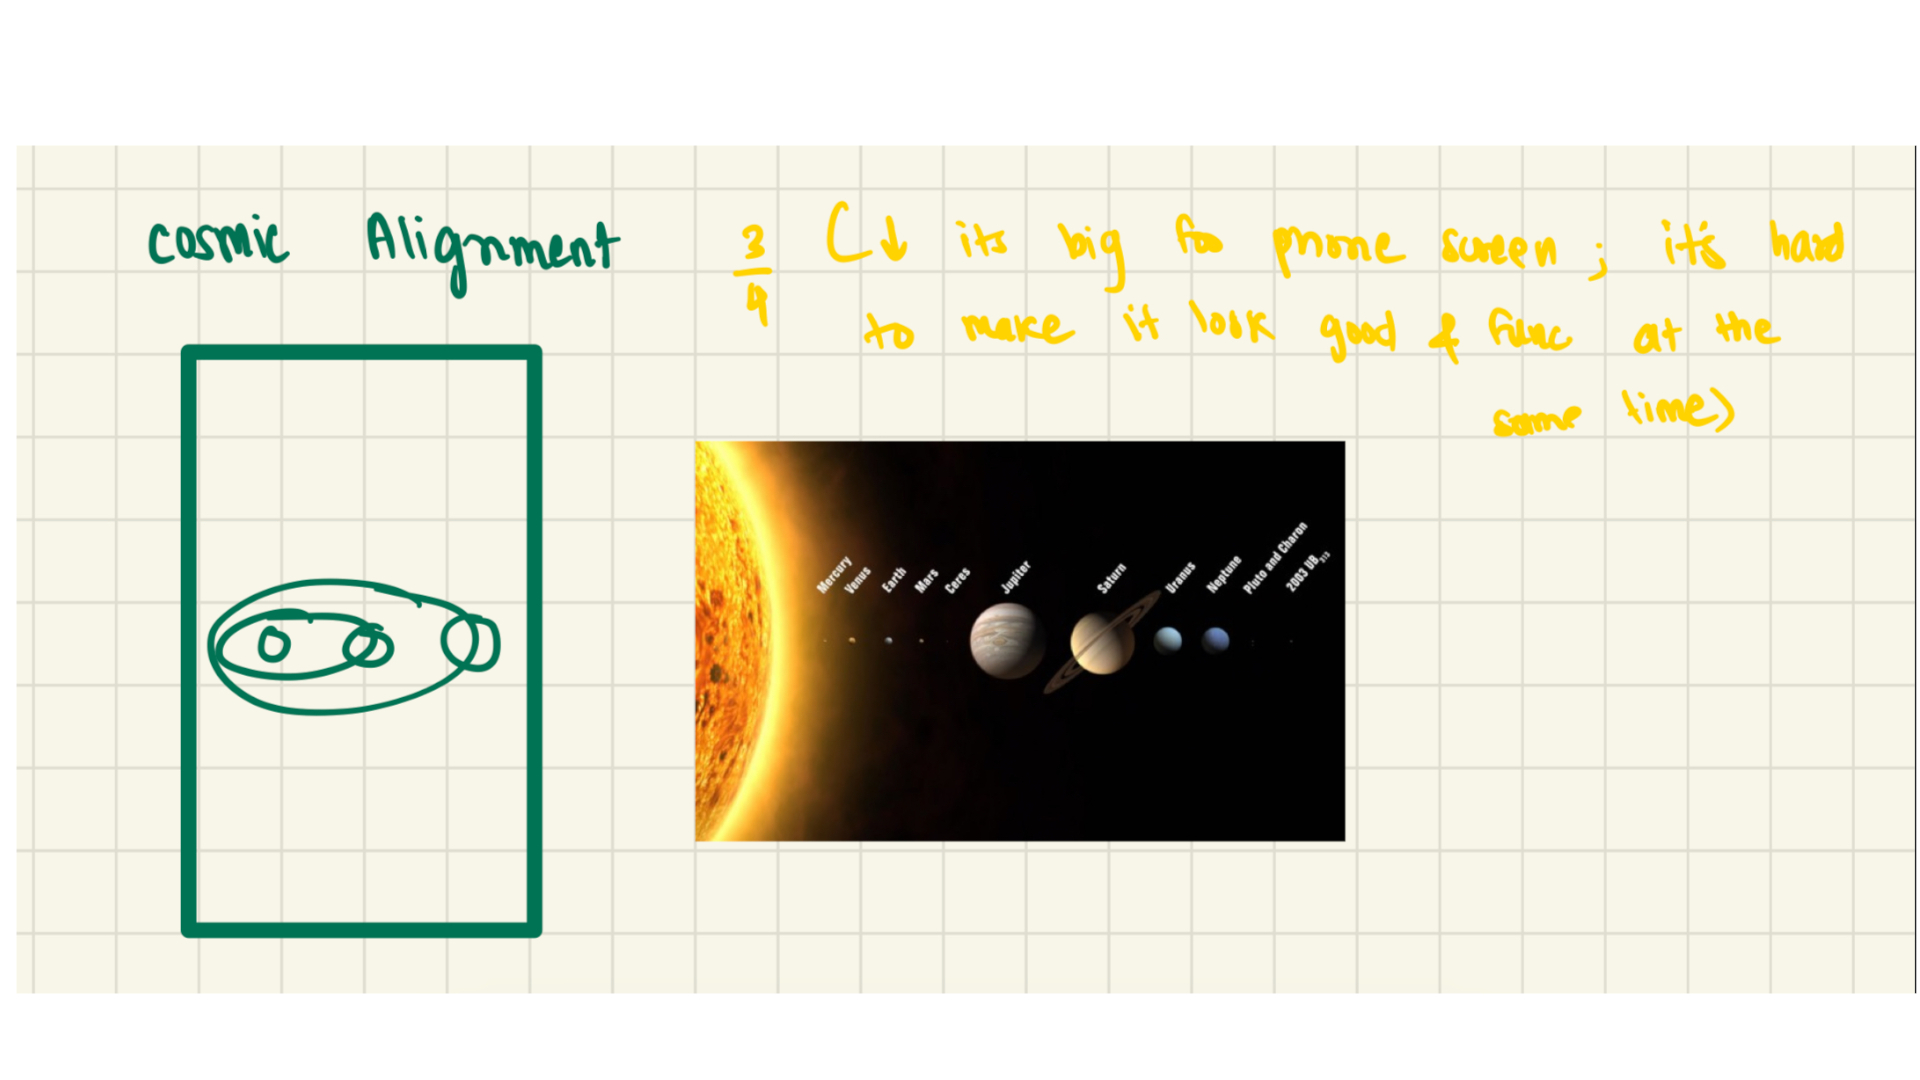 cosmic Alignment
3/4 (↓ its big for phone screen; it's hard
to make it look good & func at the
same time)
Mercury
Venus
Earth
Mars
Ceres
Jupiter
Saturn
Uranus
Neptune
Pluto and Charon
2003 UB313